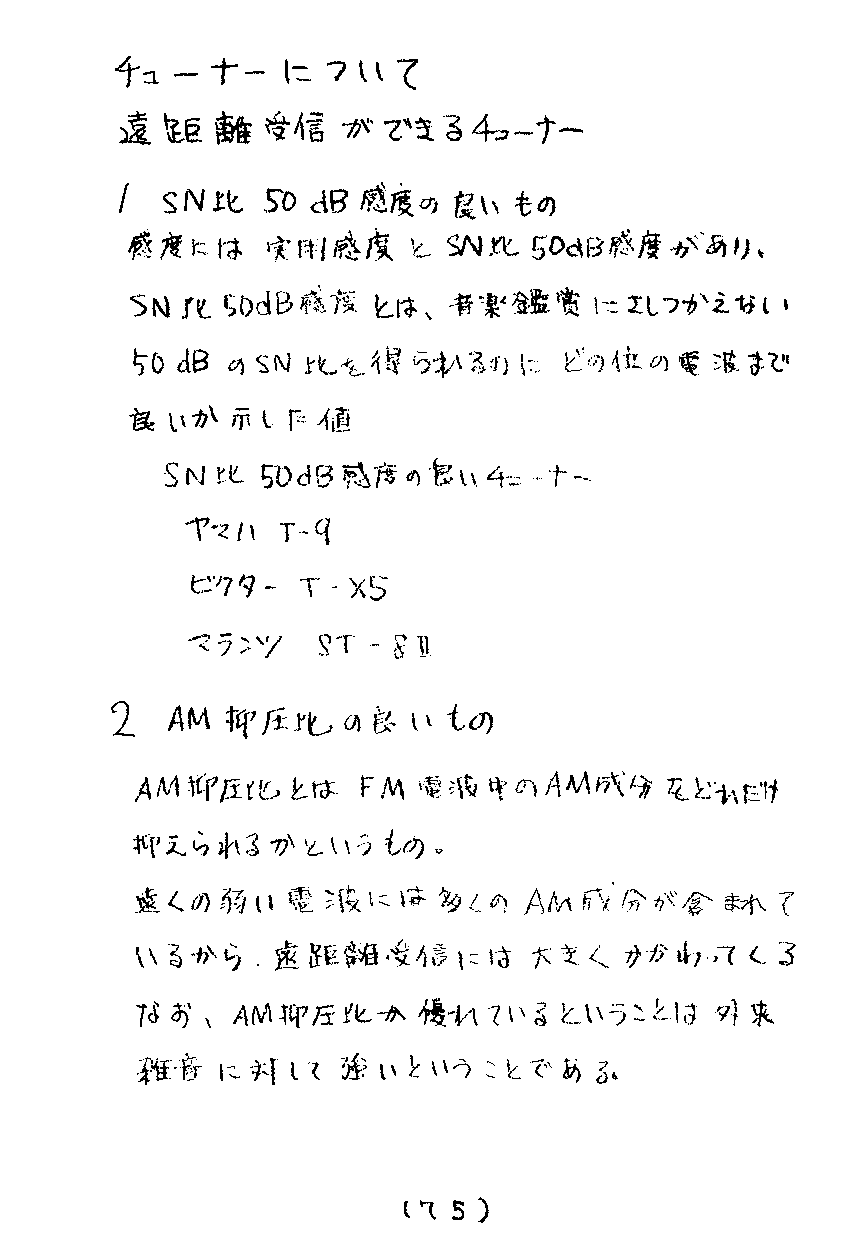 チューナーについて
遠距離受信ができるチューナー
1 SN比 50dB感度の良いもの
感度には 実用感度とSN比50dB感度があり、
SN比50dB感度とは、音楽鑑賞にさしつかえない
50dBのSN比を得られるのに どの位の電波まで
良いか示した値
SN比 50dB感度の良いチューナー
ヤマハ T-9
ビクター T-X5
マランツ ST-8II
2 AM抑圧比の良いもの
AM抑圧比とは FM電波中のAM成分をどれだけ
抑えられるかというもの。
遠くの弱い電波には多くのAM成分が含まれて
いるから、遠距離受信には大きくかかわってくる
なお、AM抑圧比が優れているということは外来
雑音に対して強いということである。
(75)